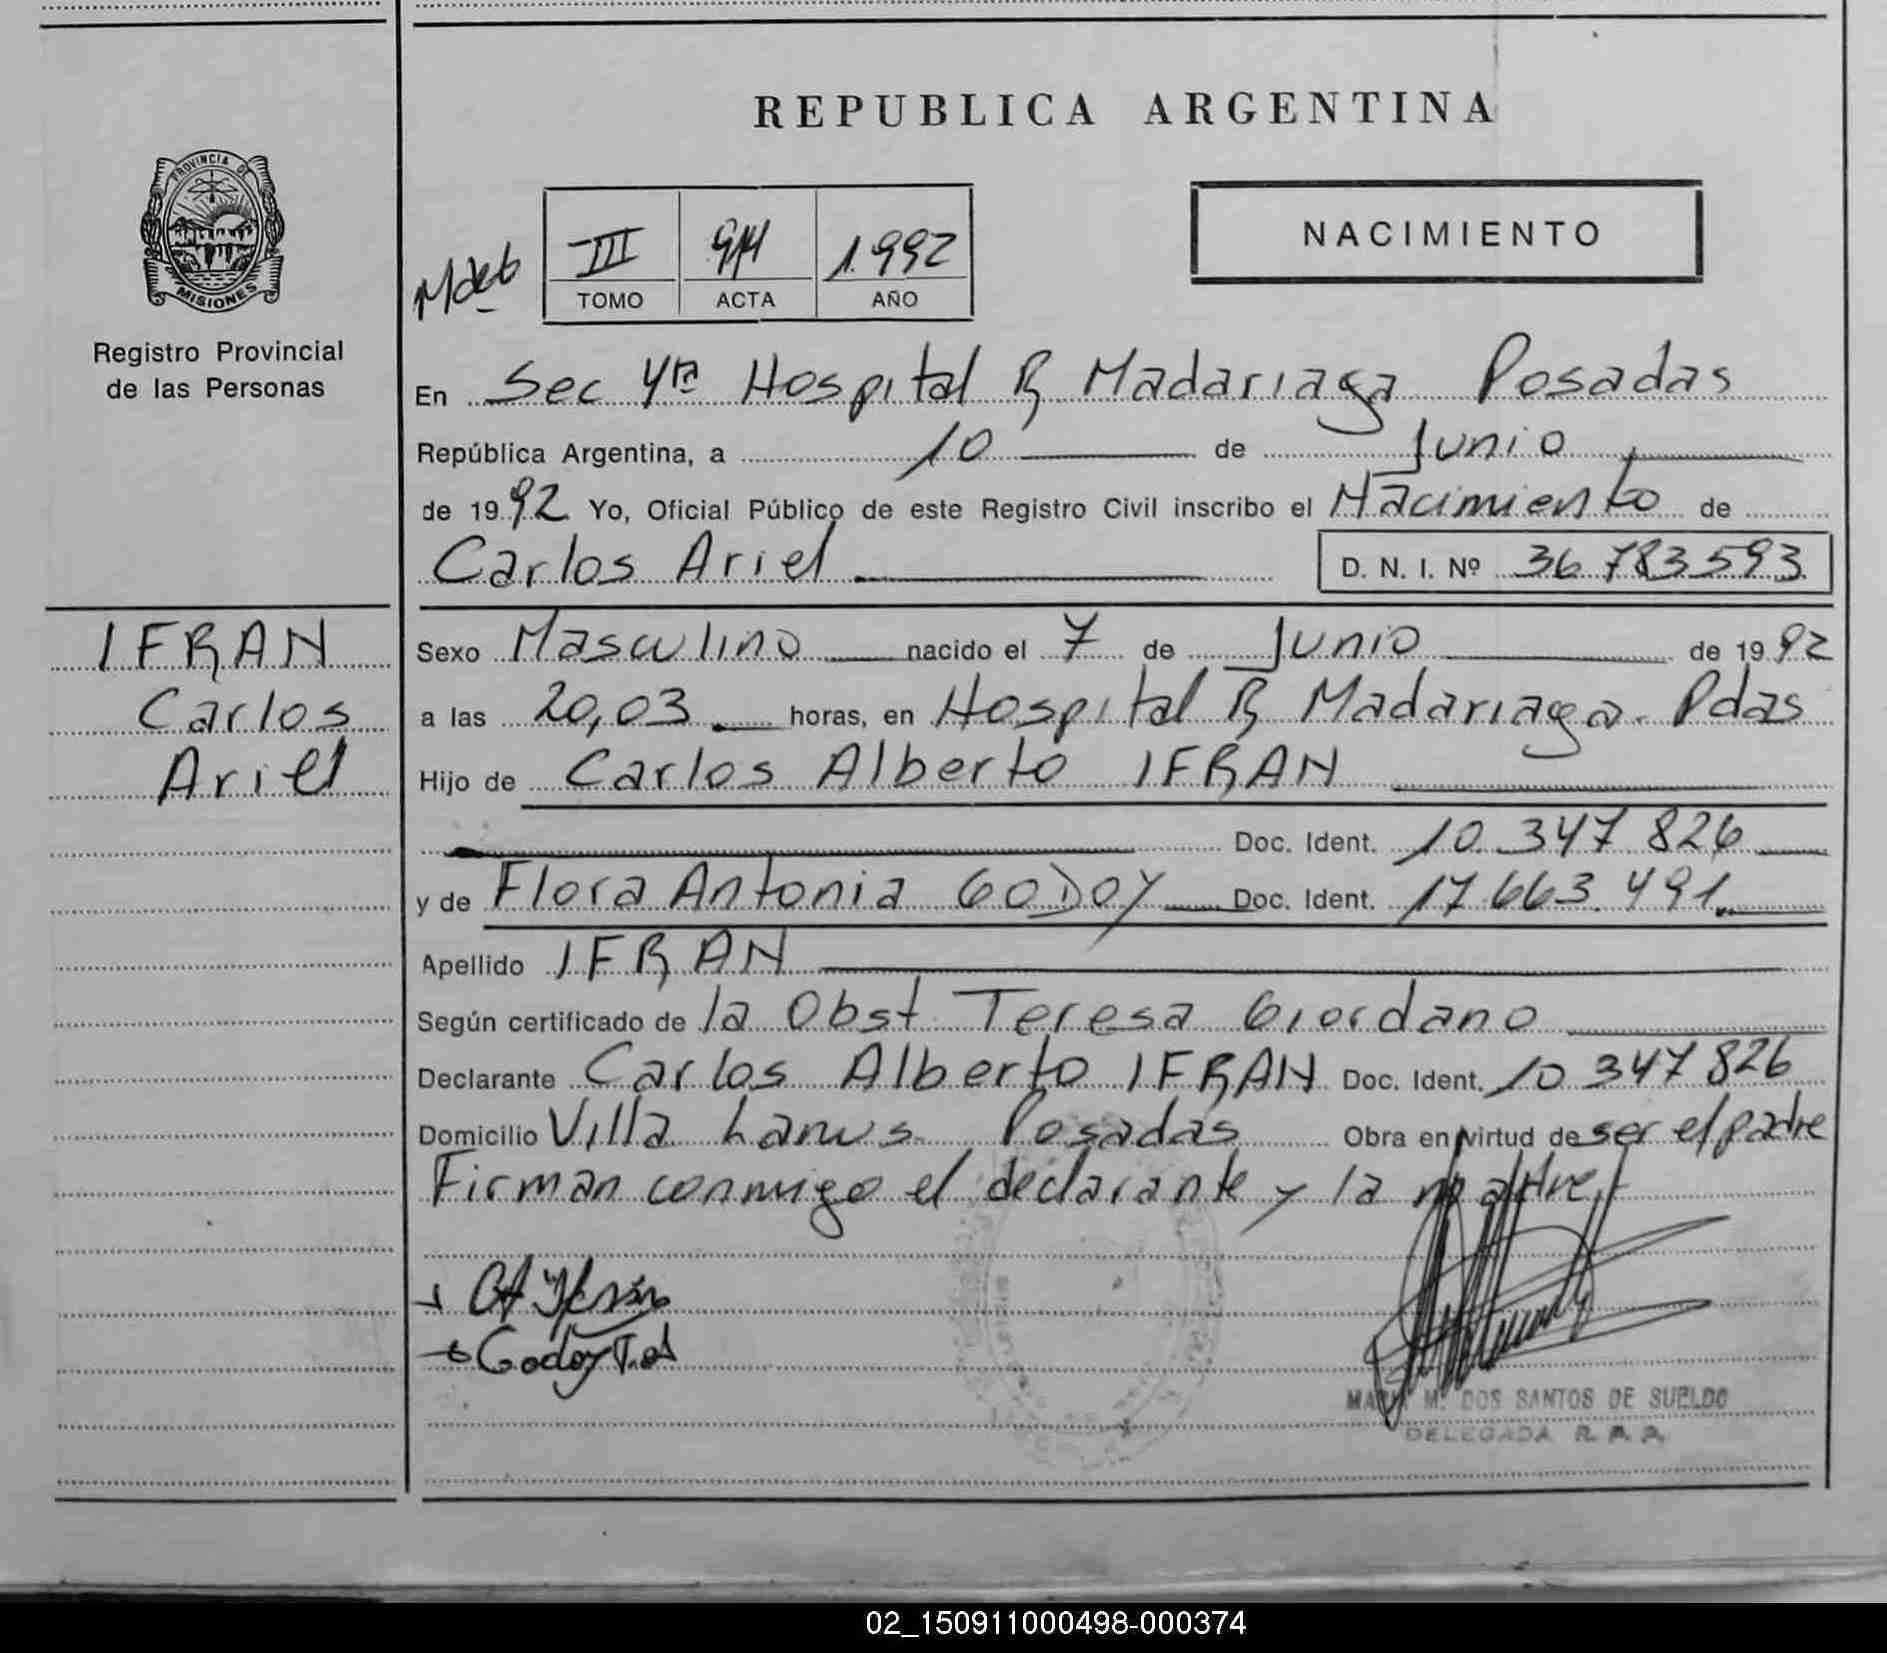 REPUBLICA ARGENTINA
PROVINCIA DE
MISIONES
Registro Provincial
de las Personas
NACIMIENTO
III 1.992
TOMO ACTA AÑO
En Sec 4ta Hospital R Madariaga Posadas
República Argentina, a 10 de Junio
de 1992 Yo, Oficial Público de este Registro Civil inscribo el Nacimiento de
Carlos Ariel D. N. I. Nº 36 783593
IFRAN
Carlos
Ariel
Sexo Masculino nacido el 7 de Junio de 1992
a las 20,03 horas, en Hospital R Madariaga. Pdas
Hijo de Carlos Alberto IFRAN
Doc. Ident. 10.347 826
y de Flora Antonia GODOY Doc. Ident. 17.663.491.
Apellido IFRAN
Según certificado de la Obst Teresa Giordano
Declarante Carlos Alberto IFRAN Doc. Ident. 10 347 826
Domicilio Villa Lanus Posadas Obra en virtud de ser el padre
Firman conmigo el declarante y la madre
CA Ifrán
Godoy
M. DOS SANTOS DE SUELDO
DELEGADA R. P. P.
02_150911000498-000374